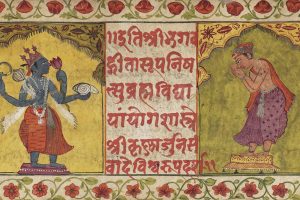 इतिश्रीभगव
द्गीतासूपनिष
त्सुब्रह्मविद्या
यांयोगशास्त्रे
श्रीकृष्णार्जुनसं
वादेविश्वरुपदर्श